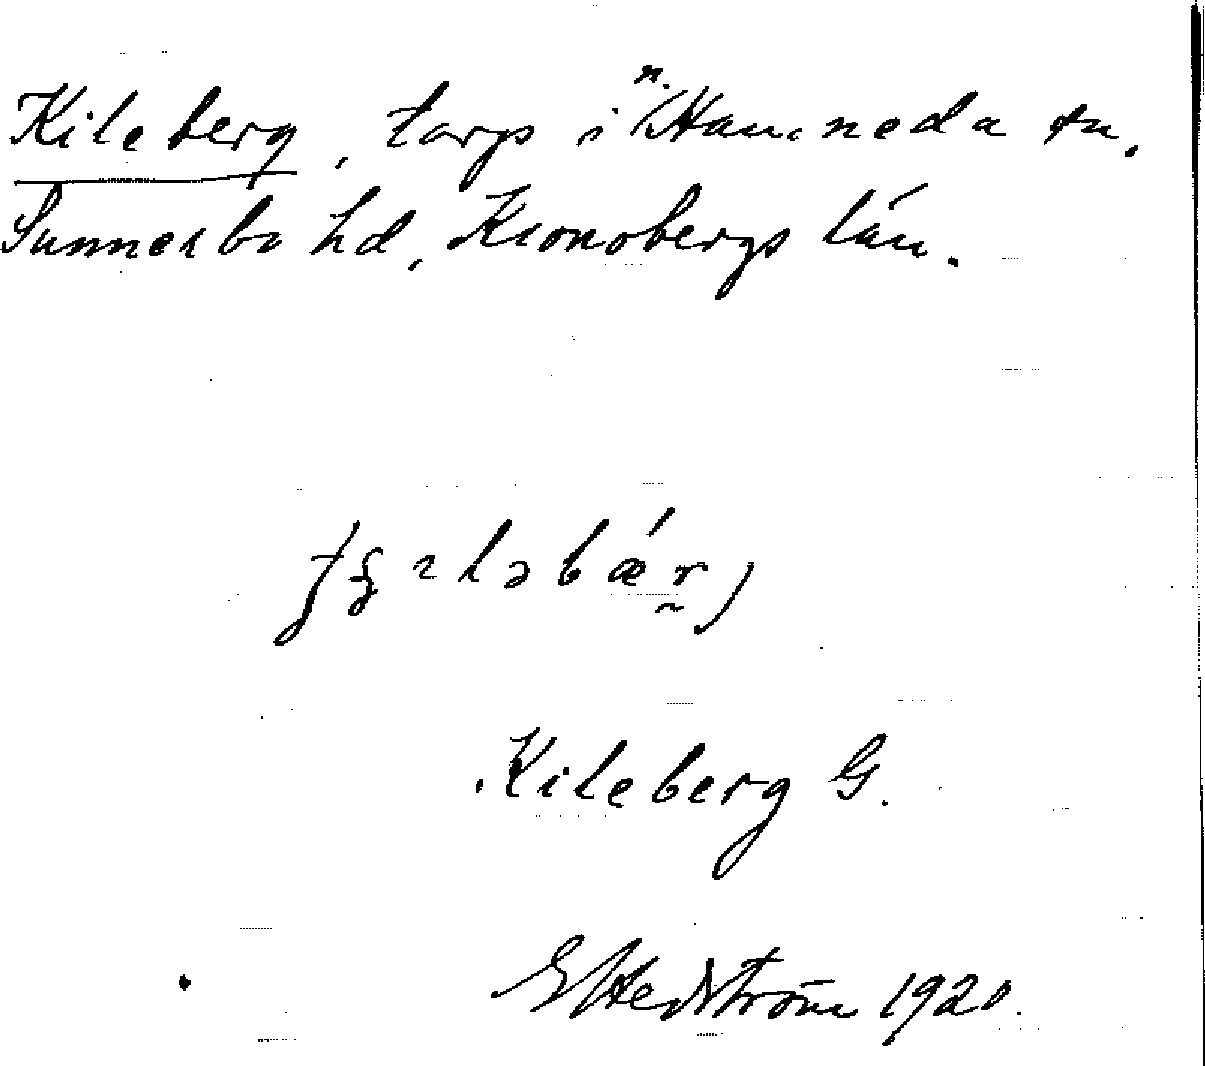 Kileberg, torp i N. Hamneda sn.
Sunnerbo hd, Kronobergs län.
Kileberg G.
E Hedström 1920.